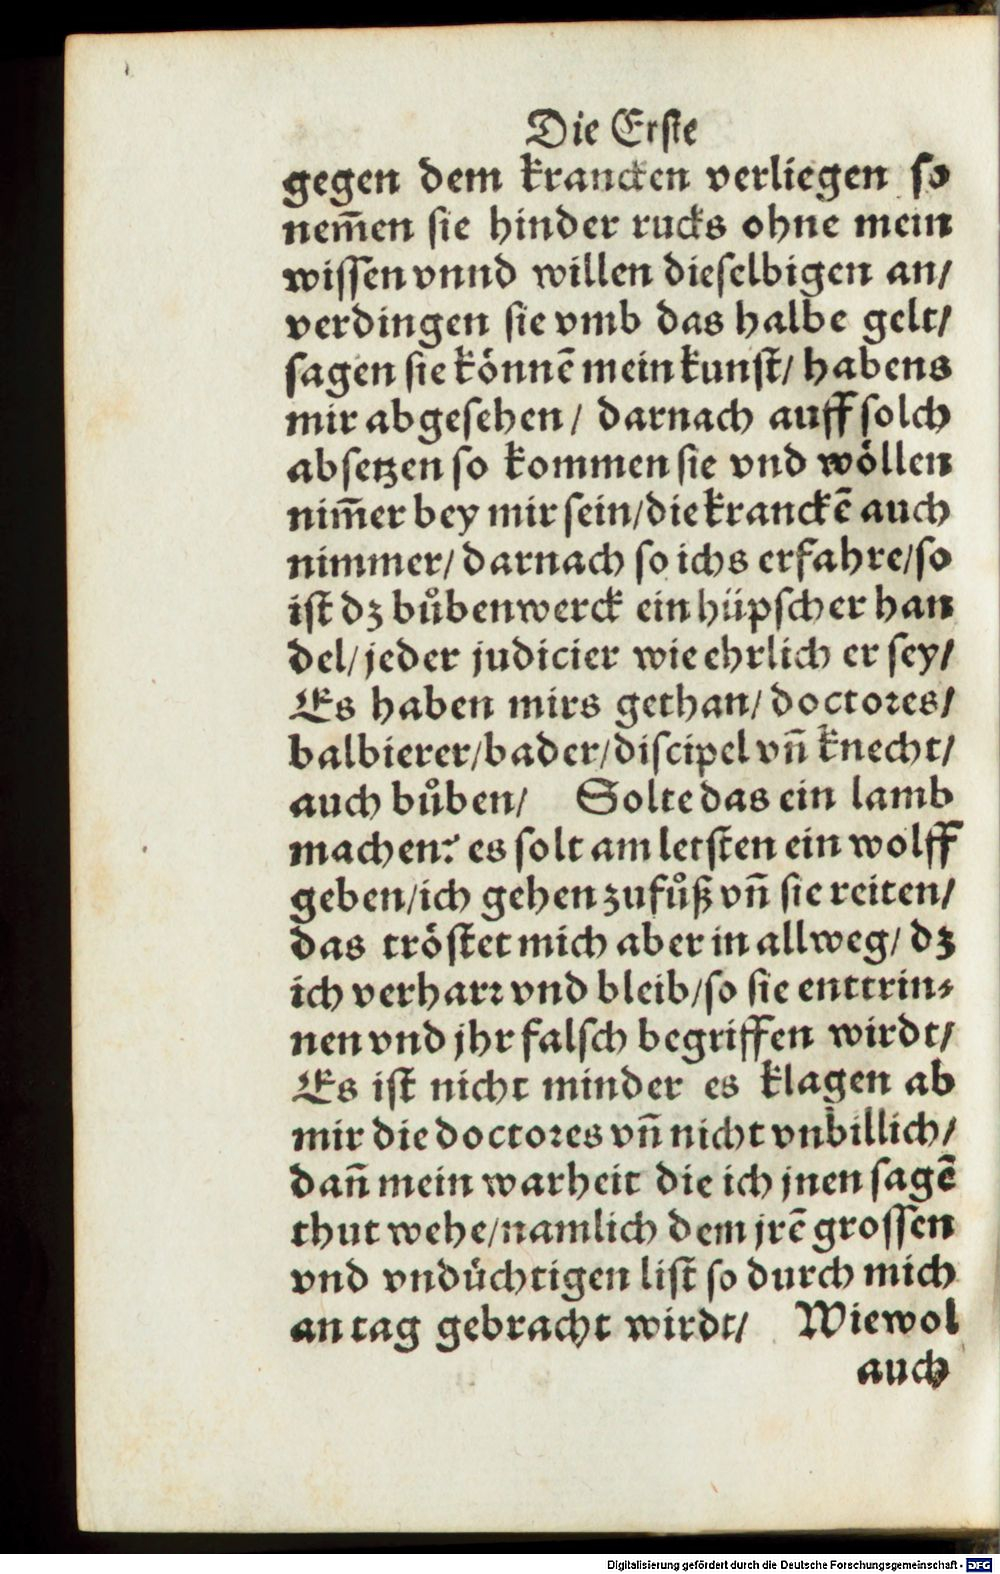 Die Erste
gegen dem krancken verliegen so
nem̄en sie hinder rucks ohne mein
wissen vnnd willen dieselbigen an/
verdingen sie vmb das halbe gelt/
sagen sie können̄ mein kunst/ habens
mir abgesehen/ darnach auff solch
absetzen so kommen sie vnd wöllen
nim̄er bey mir sein/die kranckē auch
nimmer/ darnach so ichs erfahre/so
ist dz bůbenwerck ein hüpscher han
del/jeder judicier wie ehrlich er sey/
Es haben mirs gethan/ doctores/
balbierer/bader/discipel vn̄ knecht/
auch bůben/ Solte das ein lamb
machen? es solt am letsten ein wolff
geben/ich gehen zufůß vn̄ sie reiten/
das tröstet mich aber in allweg/ dz
ich verharr vnd bleib/so sie enttrin⸗
nen vnd jhr falsch begriffen wirdt/
Es ist nicht minder es klagen ab
mir die doctores vn̄ nicht vnbillich/
dan̄ mein warheit die ich jnen sagē
thut wehe/namlich dem jrē grossen
vnd vndüchtigen list so durch mich
an tag gebracht wirdt/ Wiewol
auch
Digitalisierung gefördert durch die Deutsche Forschungsgemeinschaft - DFG